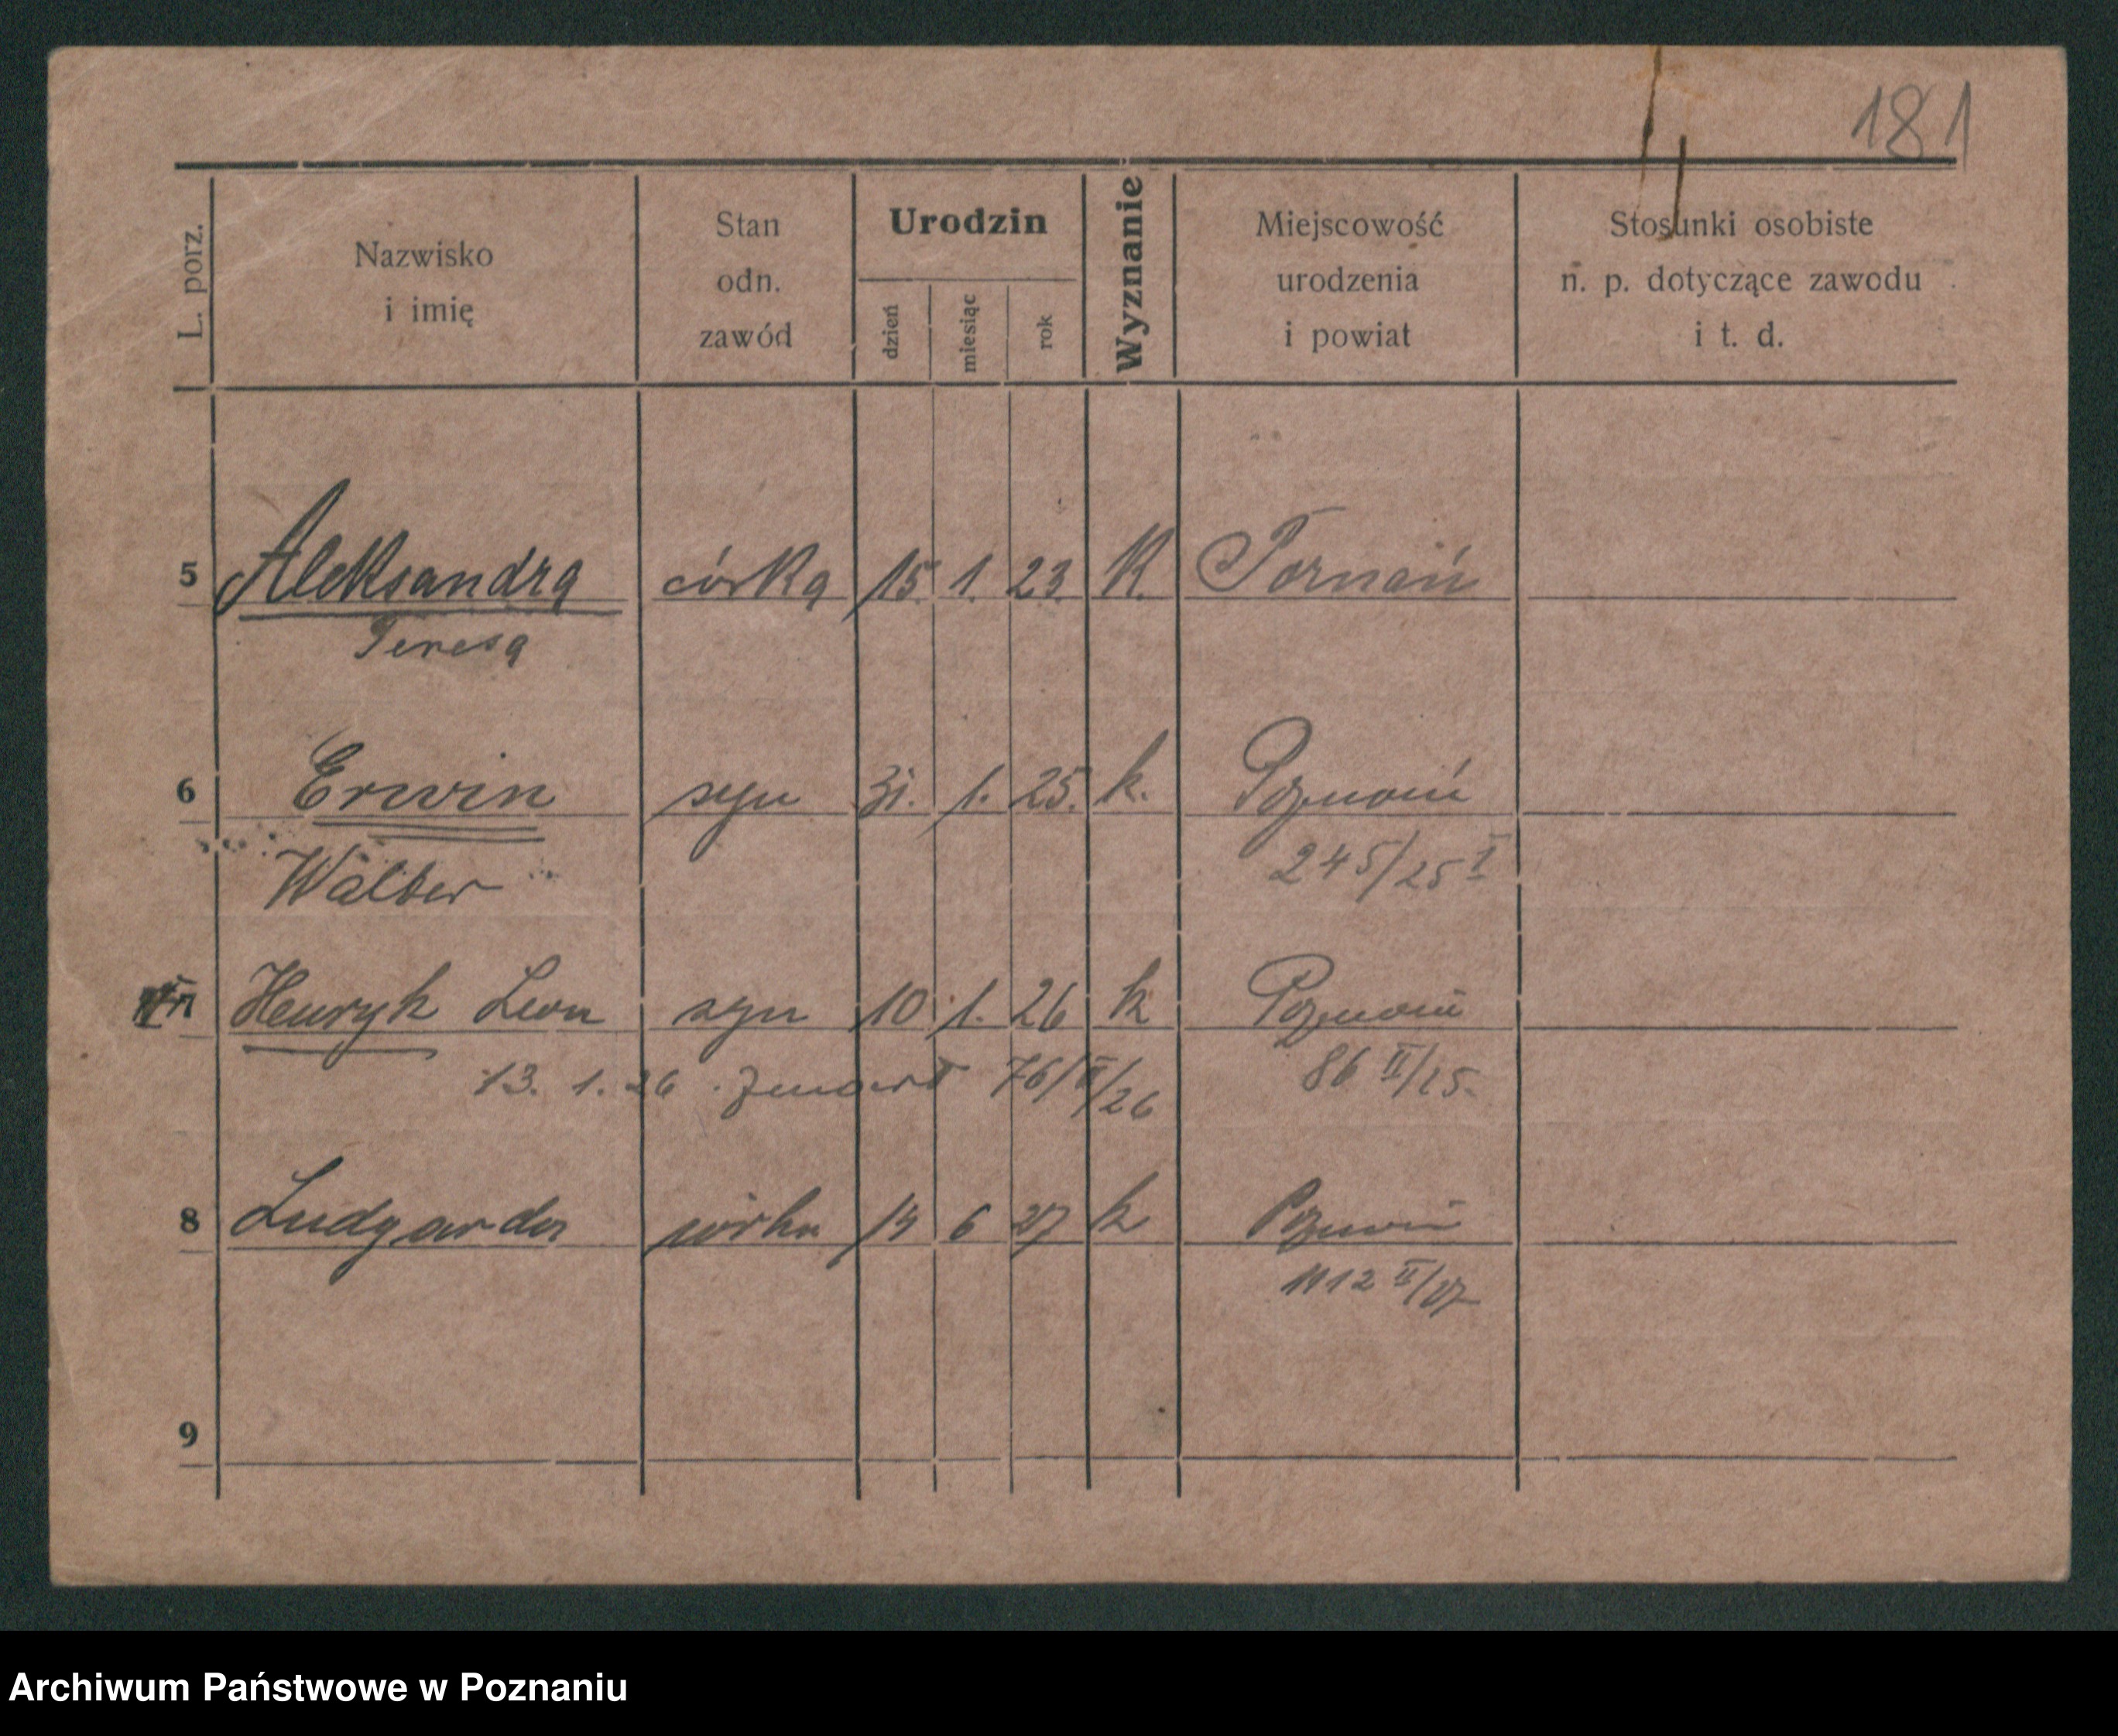 181
L. porz.
Nazwisko
i imię
Stan
odn.
zawód
Urodzin
dzień
miesiąc
rok
Wyznanie
Miejscowość
urodzenia
i powiat
Stosunki osobiste
n. p. dotyczące zawodu
i t. d.
5 Aleksandra córka 15. 1. 23. K. Poznań
Teresa
6 Erwin syn 31. 1. 25. k. Poznań
Walter 245/25 I
Henryk Leon syn 10 1. 26 k Poznań
13. 1. 26 . zmarł 76/II/26 86 II/25.
8 Ludgarda córka 14 6 27 k Poznań
1112 II/27
9
Archiwum Państwowe w Poznaniu